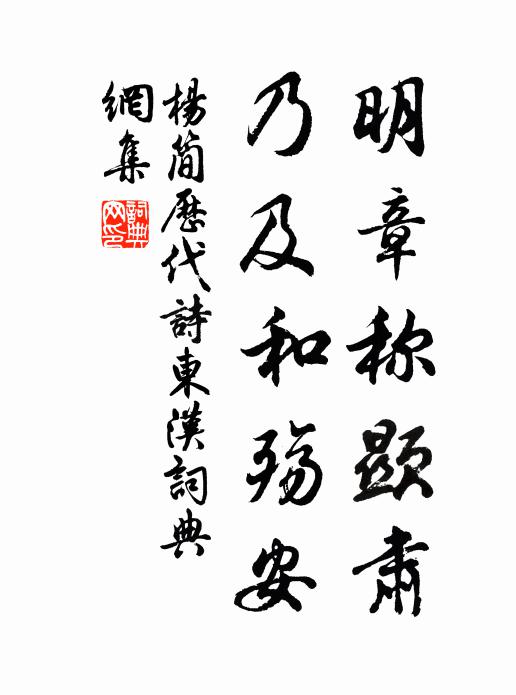 明章称顯肅
乃及和殤安
楊簡歷代詩東漢詞典
網集
詞典網印